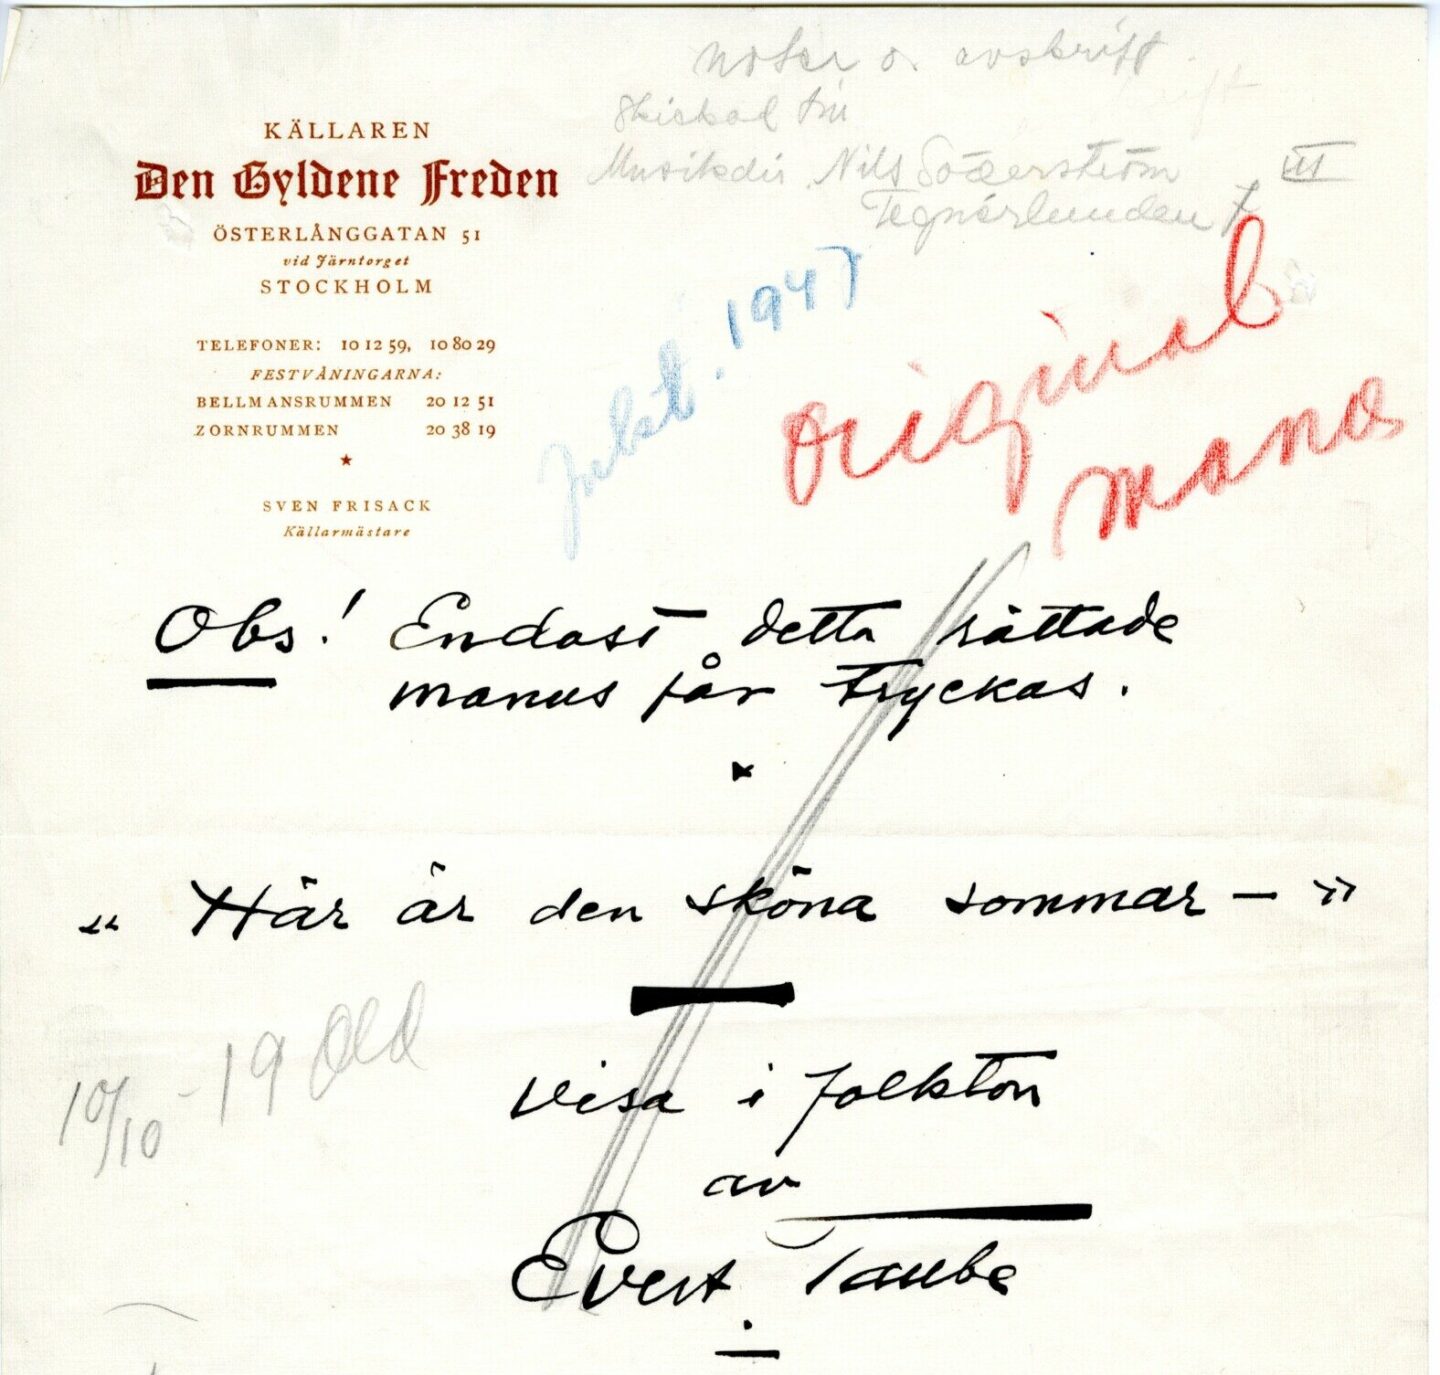 noter o. avskrift.
Skickad till
Musikdir Nils Söderström III
Tegnérlunden 7
KÄLLAREN
Den Gyldene Freden
ÖSTERLÅNGGATAN 51
vid Järntorget
STOCKHOLM
TELEFONER: 10 12 59, 10 80 29
FESTVÅNINGARNA:
BELLMANSRUMMEN 20 12 51
ZORNRUMMEN 20 38 19
★
SVEN FRISACK
Källarmästare
1947
Original
manus
Obs! Endast detta rättade
manus får tryckas.
"Här är den sköna sommar – »
10/10 - 19
Visa i folkton
av
Evert Taube